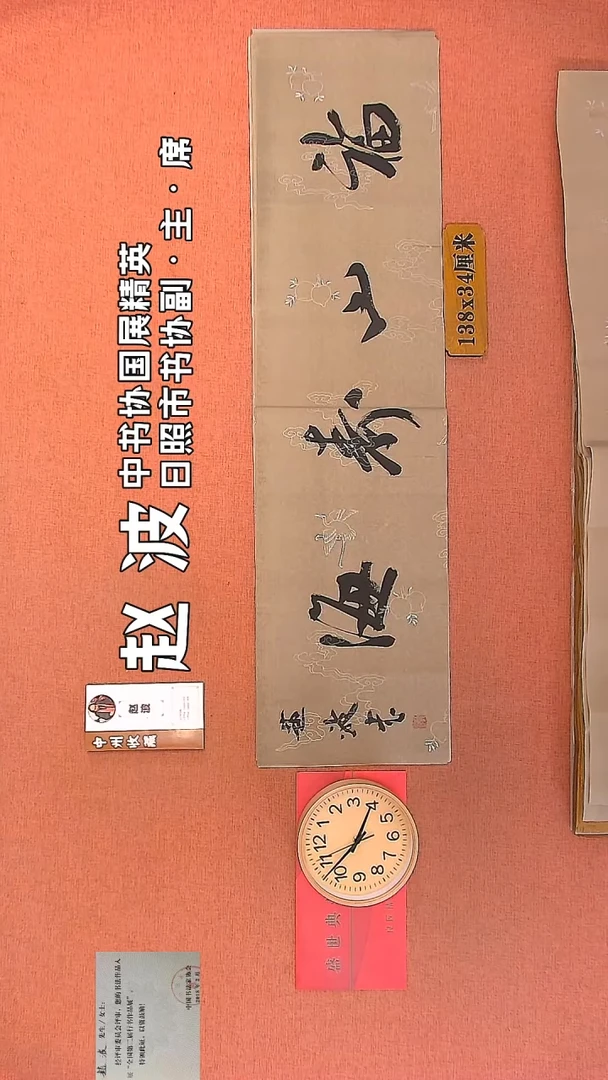 赵波
中书协国展精英
日照市书协副·主·席
福山寿海
赵波书
138x34厘米
赵波
中州收藏
盛世典
12
1
2
3
4
5
6
7
8
9
10
11
赵波 先生/女士:
经评审委员会评审,您的书法作品入
展"全国第二届行书作品展",
特颁此证,以资鼓励!
中国书法家协会